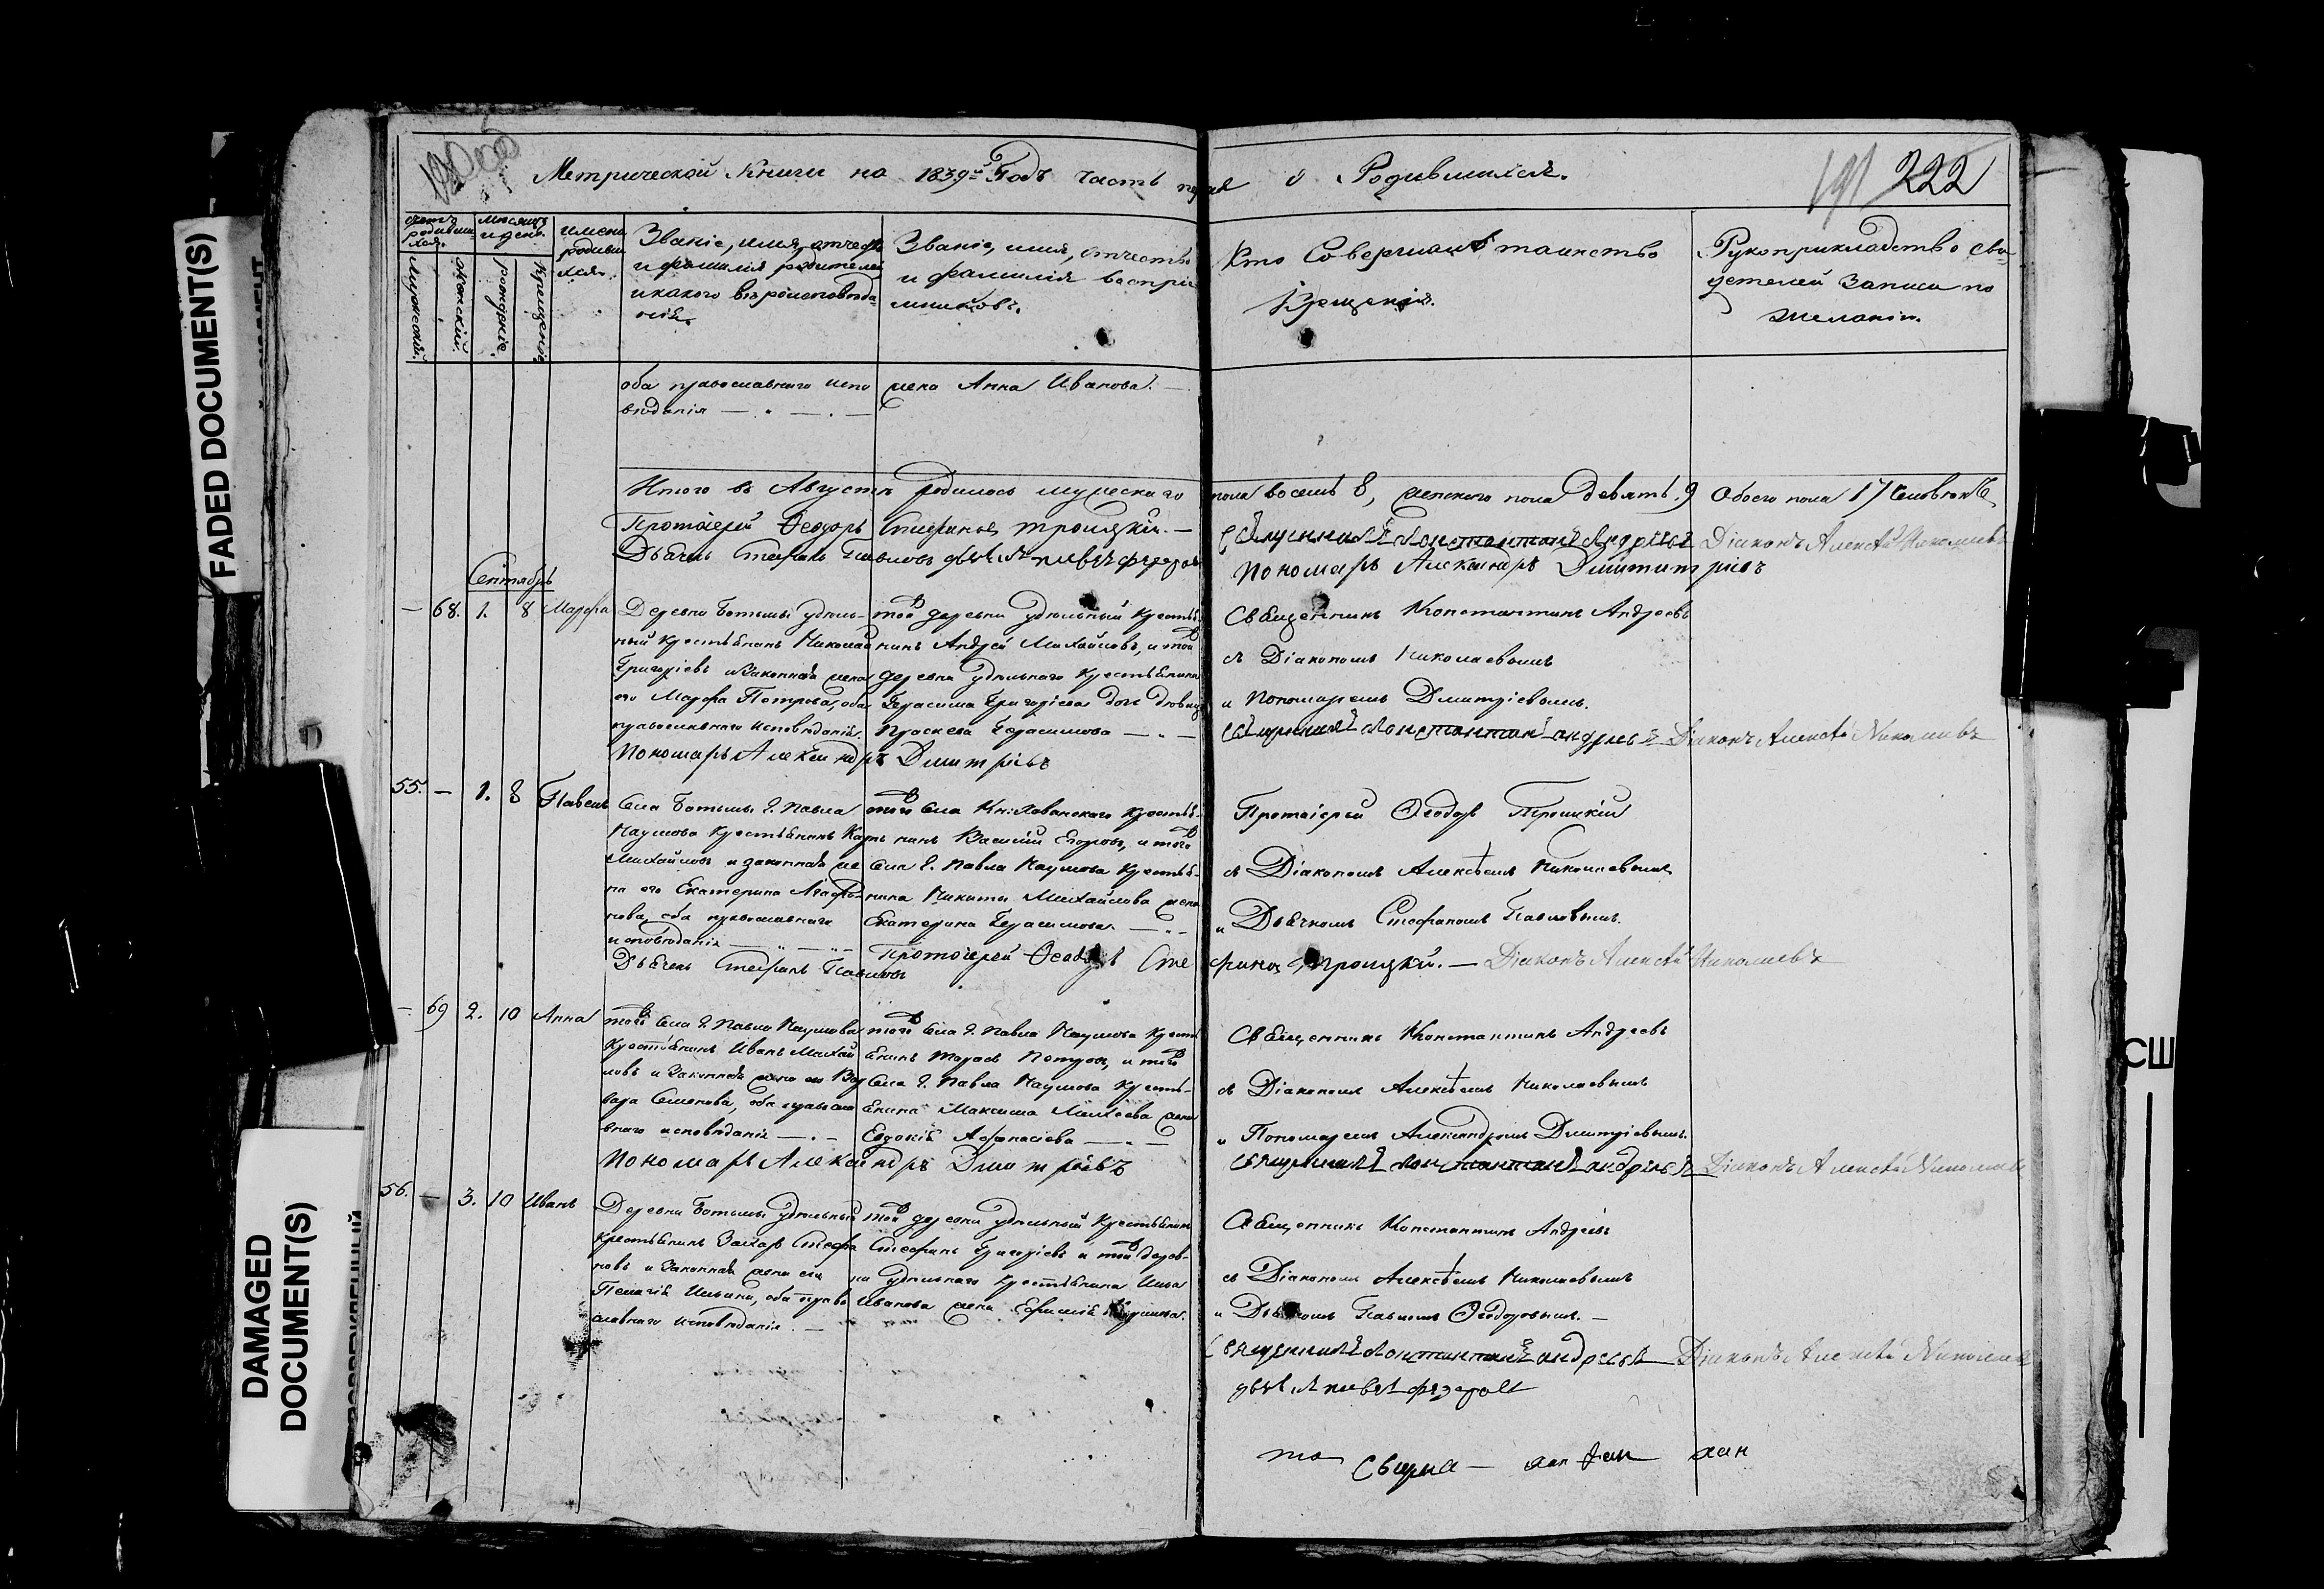 FADED DOCUMENT(S)
DAMAGED
DOCUMENT(S)
Метрической Книги на 1839й Годъ часть первая о Родившихся.
191 222
счетъ родившихся.
мѣсяцъ и день.
имена родившихся.
Мужескій.
Женскій.
рожденіе.
Крещеніе.
Званіе, имя, отчество
и фамилія родителей
и какого вѣроисповѣда-
нія.
Званіе, имя, отчество
и фамилія воспріе-
мниковъ.
Кто Совершалъ таинство
Крещенія.
Рукоприкладство сви-
детелей Записи по
желанію.
оба православнаго испо
вѣданія
жена Анна Иванова.
Итого въ Августѣ родилось мужескаго пола восемь 8, женскаго пола девять 9 Обоего пола 17 человѣкъ
Протоіерей Ѳеодоръ Стефановъ Троицкій. — Священникъ Константинъ Андреевъ Діаконъ Алексѣй Николаевъ
Дьячекъ Стефанъ Павловъ
Пономарь Александръ Димитріевъ
Сентябрь
— 68. 1. 8 Марфа
Деревни Ботьмы удѣль-
ный крестьянинъ Николай
Григорьевъ и Законная жена
его Марфа Петрова, оба
православнаго исповѣданія.
той деревни удѣльный Крестья-
нинъ Андрей Михайловъ, и той
деревни удѣльнаго Крестьянина
Герасима Григорьева дочь дѣвица
Праскева Герасимова
Священникъ Константинъ Андреевъ
съ Діакономъ Николаевымъ
и Пономаремъ Димитріевымъ.
Священникъ Константинъ Андреевъ Діаконъ Алексѣй Николаевъ
Пономарь Александръ Димитріевъ
55. — 1. 8 Павелъ
Села Ботьмы Г. Павла
Наумова Крестьянинъ Карпъ
Михайловъ и законная же
на его Екатерина Агафо-
нова, оба православнаго
исповѣданія
того Села Крестья-
нинъ Василій Егоровъ, и того
Села Г. Павла Наумова Крестья-
нина Никиты Михайлова жена
Екатерина Герасимова
Протоіерей Ѳеодоръ Троицкій
съ Діакономъ Алексѣемъ Николаевымъ
и Дьячкомъ Стефаномъ Павловымъ.
Протоіерей Ѳеодоръ Стефановъ Троицкій. — Діаконъ Алексѣй Николаевъ
Дьячекъ Стефанъ Павловъ
— 69 2. 10 Анна
того Села Г. Павла Наумова
Крестьянинъ Иванъ Михай
ловъ и Законная жена его Вар
вара Семенова, оба правосла
внаго исповѣданія
того Села Г. Павла Наумова Крест
ьянинъ Тарасъ Петровъ, и того
Села Г. Павла Наумова Кресть-
янина Максима Михеева жена
Евдокія Афанасіева
Священникъ Константинъ Андреевъ
съ Діакономъ Алексѣемъ Николаевымъ
и Пономаремъ Александромъ Димитріевымъ.
Священникъ Константинъ Андреевъ Діаконъ Алексѣй Николаевъ
Пономарь Александръ Димитріевъ
56. — 3. 10 Иванъ
Деревни Ботьмы удѣльный
Крестьянинъ Захаръ Стефа
новъ и Законная жена его
Пелагія Ильина, оба право
славнаго исповѣданія. —
той деревни удѣльный Крестьянинъ
Стефанъ Григорьевъ и той дерев-
ни удѣльнаго Крестьянина Ильи
Иванова жена Ефимія
Священникъ Константинъ Андреевъ
съ Діакономъ Алексѣемъ Николаевымъ
и Дьячкомъ Павломъ Ѳеодоровымъ. —
Священникъ Константинъ Андреевъ Діаконъ Алексѣй Николаевъ